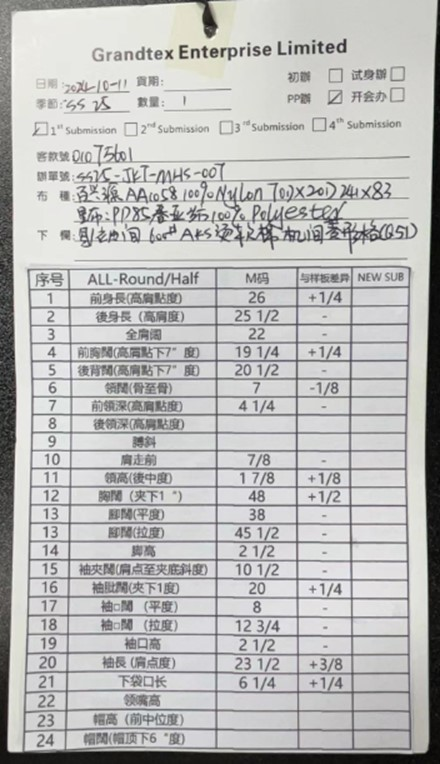 Grandtex Enterprise Limited
日期:2024-10-11 貨期: 初辦 □ 試身辦 □
季節:SS 25 數量: 1 PP辦 ☑ 开会办 □
☑ 1st Submission □ 2nd Submission □ 3rd Submission □ 4th Submission
客款號:
辦單號:SS25-JKT-MHS-007
布 種: AA1058 100% Nylon 70D×20D 241×83
里布: 100% Polyester
下 欄: 600#
序号 ALL-Round/Half M码 与样板差异 NEW SUB
1 前身長(高肩點度) 26 +1/4
2 後身長(高肩度) 25 1/2 -
3 全肩闊 22 -
4 前胸闊(高肩點下7"度) 19 1/4 +1/4
5 後背闊(高肩點下7"度) 20 1/2 -
6 領闊(骨至骨) 7 -1/8
7 前領深(高肩點度) 4 1/4 -
8 後領深(高肩點度)
9 膊斜
10 肩走前 7/8 -
11 領高(後中度) 1 7/8 +1/8
12 胸闊(夾下1") 48 +1/2
13 腳闊(平度) 38 -
13 腳闊(拉度) 45 1/2 -
14 脚高 2 1/2 -
15 袖夾闊(肩点至夾底斜度) 10 1/2 -
16 袖肶闊(夾下1度) 20 +1/4
17 袖□闊(平度) 8 -
18 袖□闊(拉度) 12 3/4 -
19 袖口高 2 1/2 -
20 袖長(肩点度) 23 1/2 +3/8
21 下袋口长 6 1/4 +1/4
22 领嘴高
23 帽高(前中位度)
24 帽闊(帽顶下6"度)